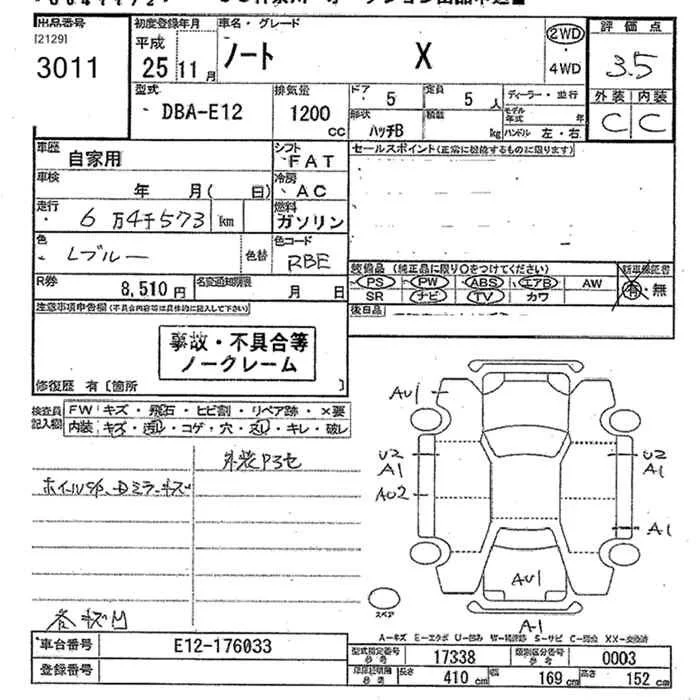 出品番号 初度登録年月 車名・グレード 2WD 評価点
[2129] 平成 ノート X
3011 25 11月 4WD 3.5
型式 排気量 ドア 5 定員 5人 ディーラー・並行 外装 内装
DBA-E12 1200 CC 形状 ハッチB 積載 kg モデル年式 年 C C
ハンドル 左・右
車歴 自家用 シフト FAT セールスポイント(正常に機能するものに限ります)
車検 年 月( 日) 冷房 AC
走行 6万4千573 km 燃料 ガソリン
色 Lブルー 色替 色コード RBE
装備品 (純正品に限り○をつけてください) 新車保証書
R券 8,510円 名変通知期限 月 日 PS PW ABS エアB AW 有・無
SR ナビ TV カワ
注意事項申告欄(不具合内容等は具体的に記入して下さい) 後日品
事故・不具合等
ノークレーム
修復歴 有〔箇所 〕
検査員記入欄 FW キズ・飛石・ヒビ割・リペア跡・×要
内装 キズ・汚レ・コゲ・穴・スレ・キレ・破レ
AU1
U2 U2
A1 A1
AU2
A1
AU1
スペア
A1
A-キズ E-エクボ U-凹ミ W-補修跡 S-サビ C-腐食 XX-交換済
車台番号 E12-176033 型式指定番号 参考 17338 類別区分番号 参考 0003
登録番号 車両寸法 参考 長さ 410 cm 幅 169 cm 高さ 152 cm